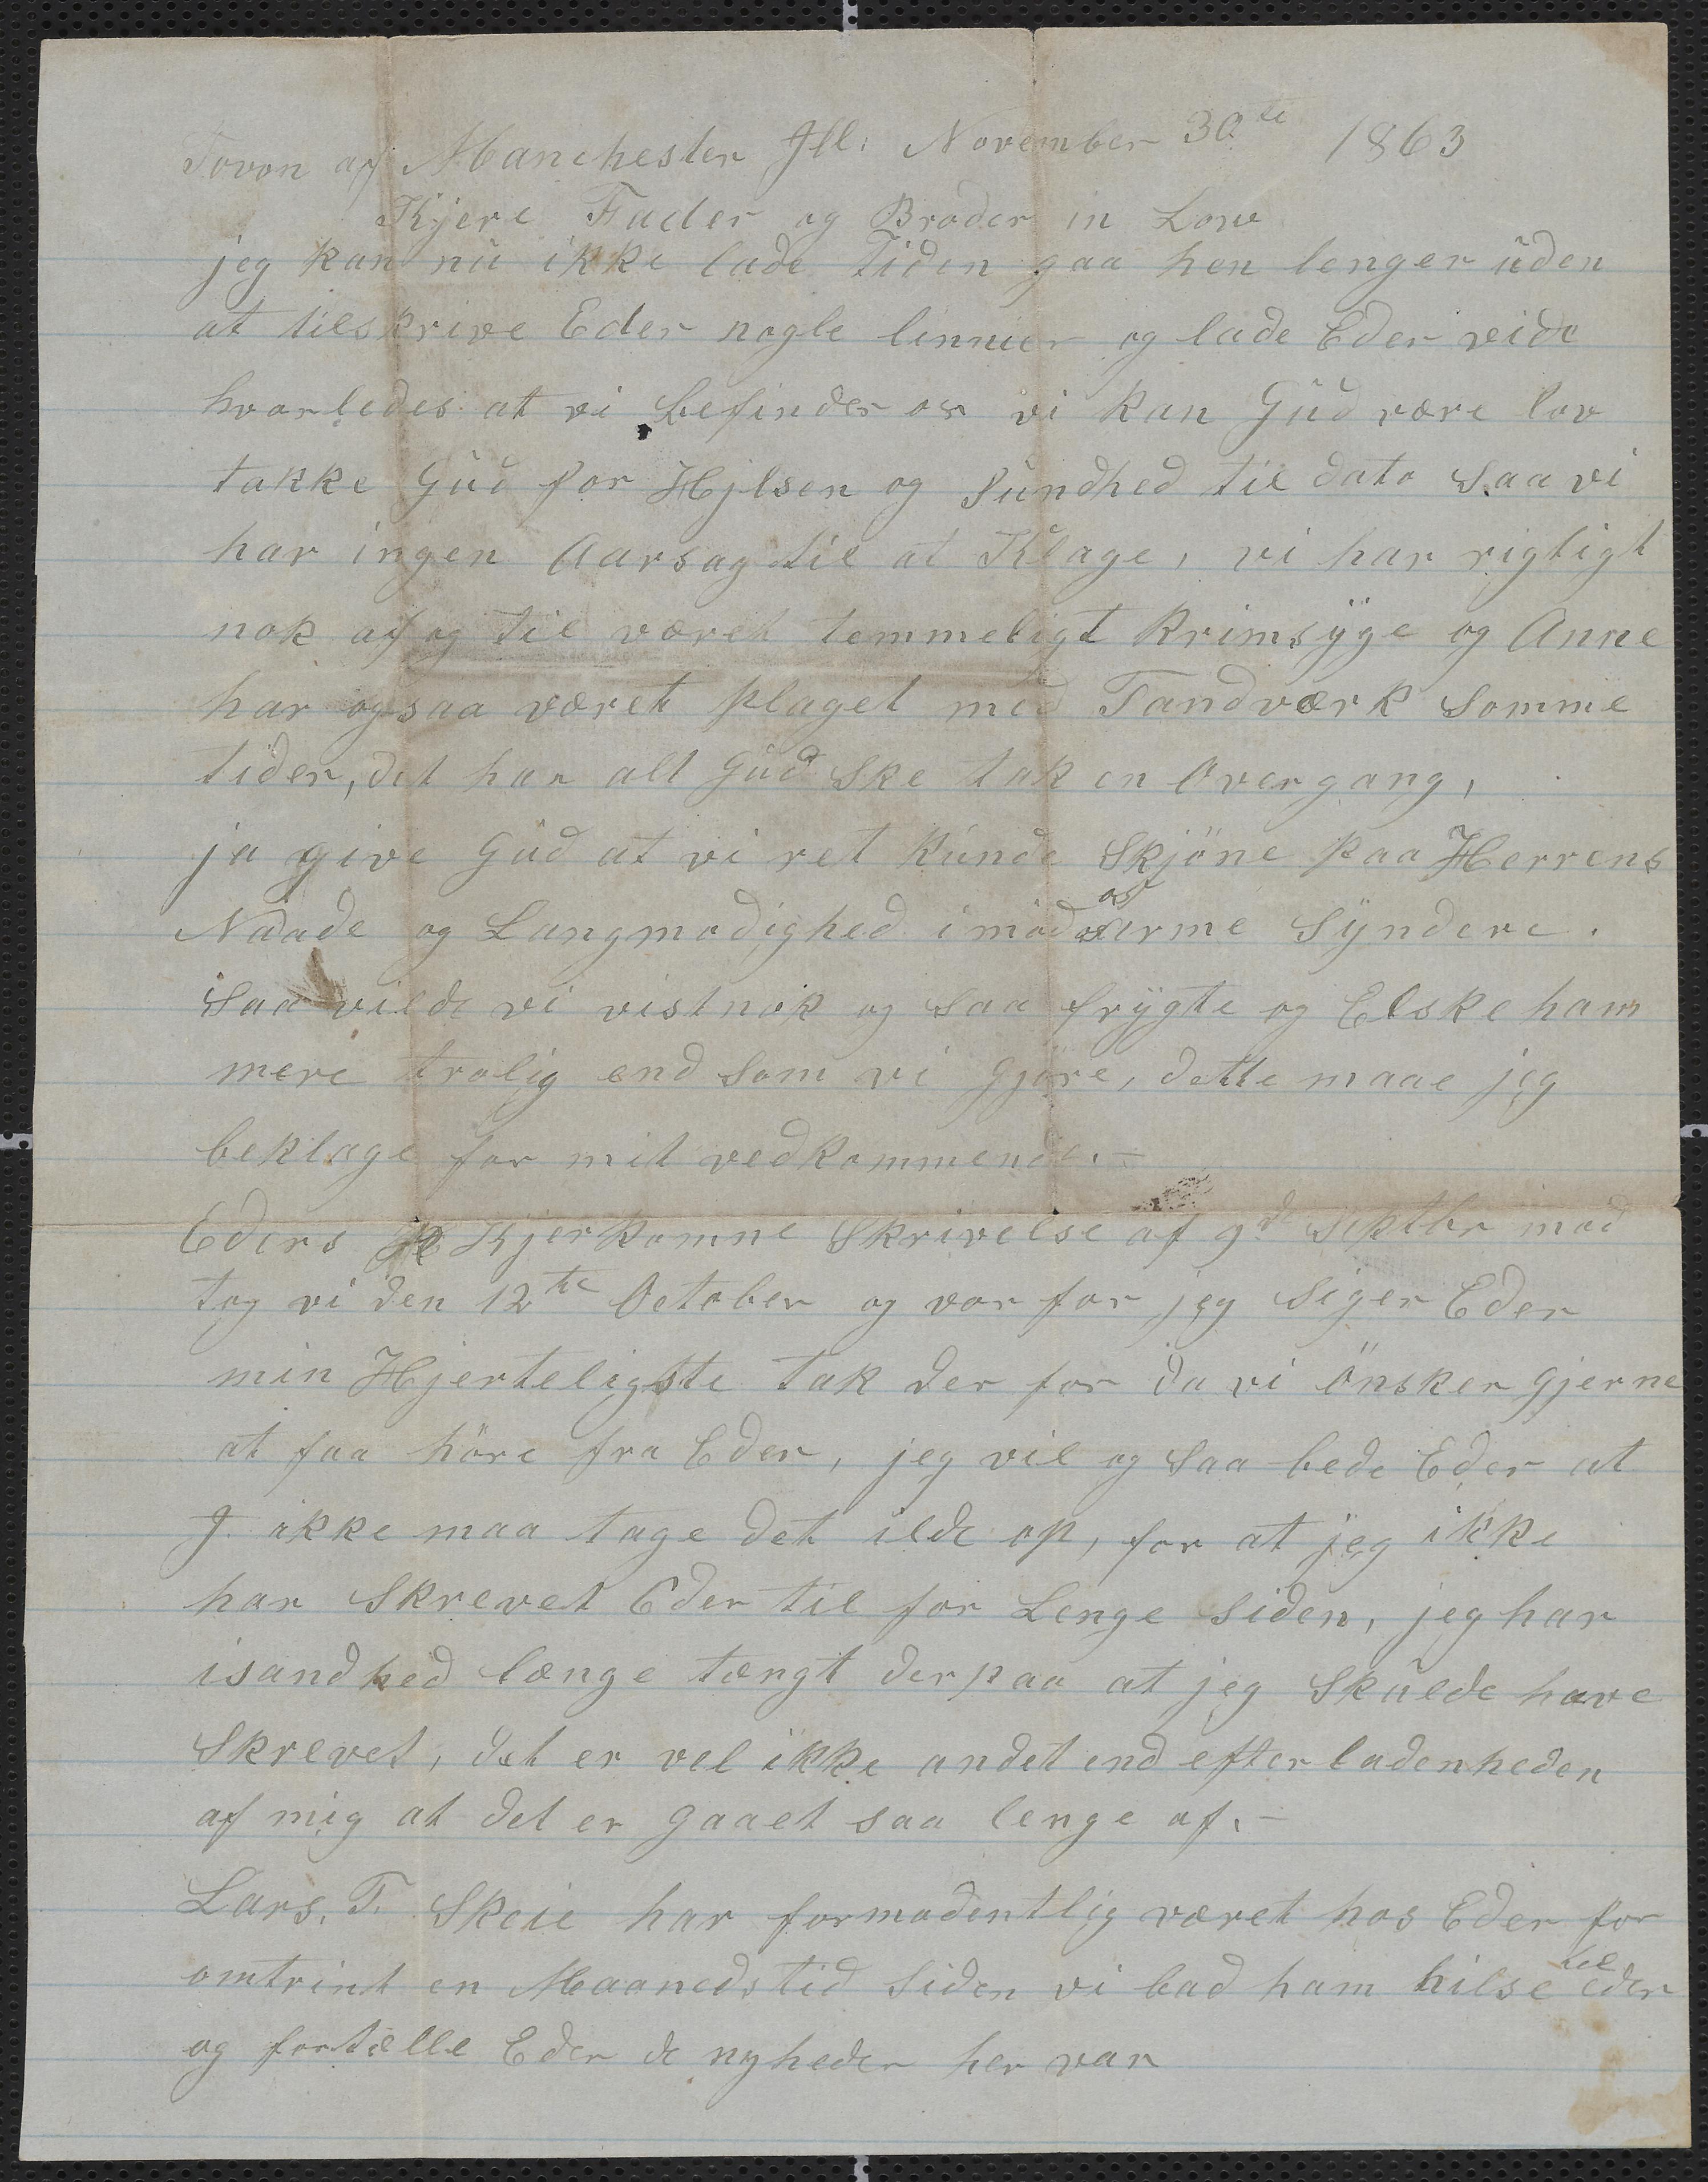 Tovon af Manchester Ill: November 30te 1863
Kjere Fader og Broder in Low
jeg kan nü ikke lade Tiden gaa hen lenger üden
at tilskrive Eder nogle linnier og lade Eder vide
hvorledes at vi befinder os vi kan Güd være lov
takke Güd for Hjlsen og Sündhed til dato saa vi
har ingen Aarsag til at Klage, vi har rigtigt
nok af og til været temmeligt Krimsÿge og Anne
har ogsaa været plaget med Tandværk Somme
tider, det har alt Güd Ske tak en Overgang,
ja give Güd at vi ret Künde Skjöne paa Herrens
Naade og Langmodighed imod os arme Sÿndere.
Saa vilde vi vistnok og saa frÿgte og Elske ham
mere trolig end som vi Gjöre, dette maae jeg
beklage for mit vedkommende.-
Eders Kjerkomne Skrivelse af 9d Septbr mod
tog vi den 12te October og vor for jeg siger Eder
min Hjerteligste tak der for da vi önsker gjerne
at faa höre fra Eder, jeg vil og saa bede Eder at
J ikke maa tage det ilde op, for at jeg ikke
har Skrevet Eder til for Lenge siden, jeg har
isandhed længe tængt derpaa at jeg Skülde have
Skrevet, det er vel ikke andet end efterladenheden
af mig at det er gaaet saa lenge af.-
Lars. T. Skeie har formodentlig været hos Eder for
omtrint en Maanedstid Siden vi bad ham hilse til eder
og fortælle Eder de nyheder her var